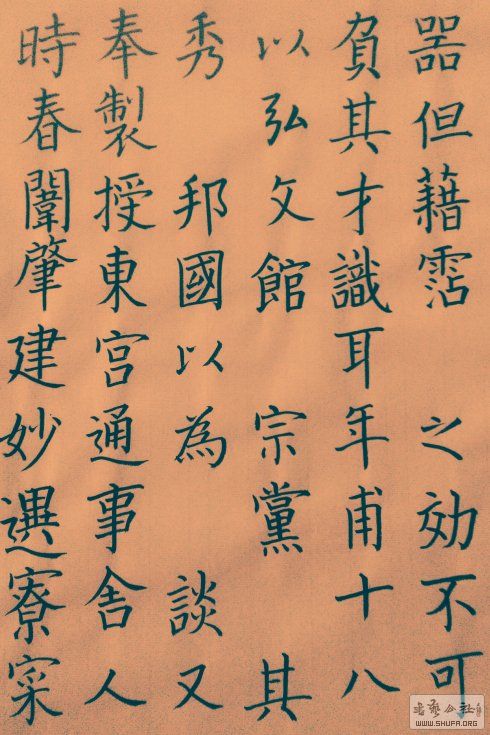 器但藉霑 之効不可
負其才識耳年甫十八
以弘文館 宗黨 其
秀 邦國以為 談又
奉製授東宮通事舍人
時春闈肇建妙選寮寀
WWW.SHUFA.ORG